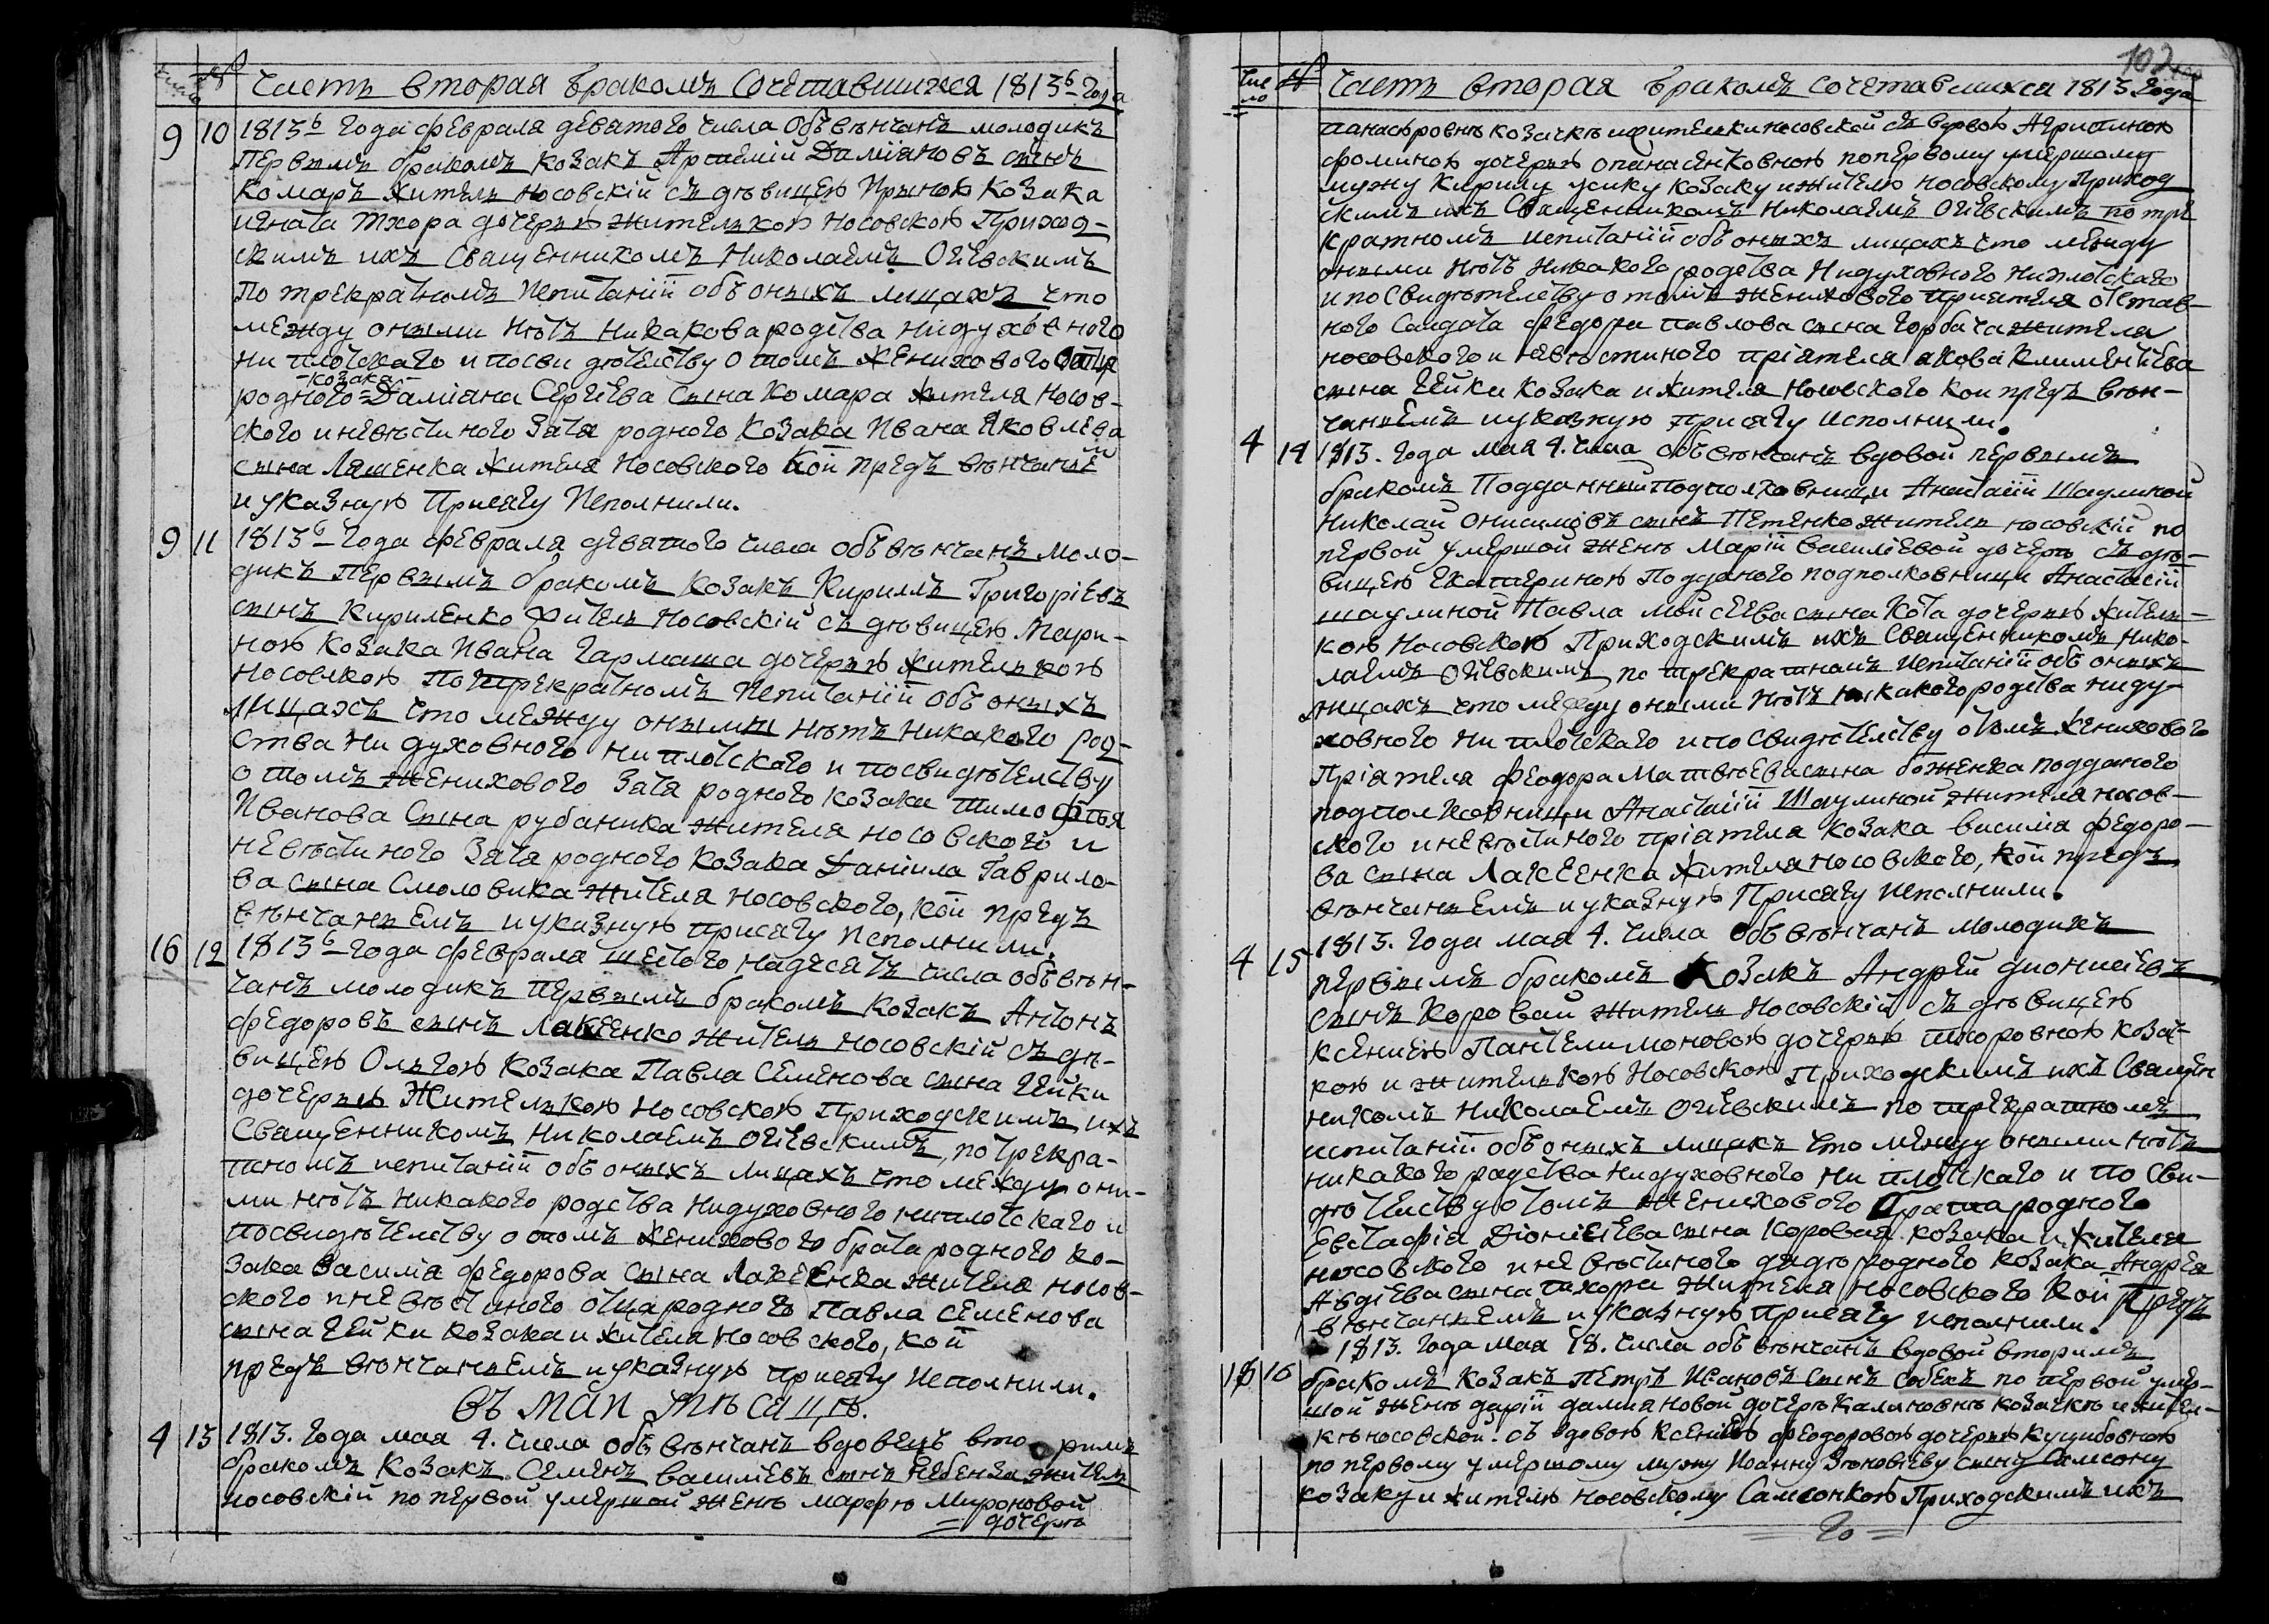 число № Часть вторая браком сочетавшихся 1813ь Года
9 10 1813ь Года февраля девятого числа обвѣнчанъ молодикъ
первымъ бракомъ козакъ Артемій Даміановъ сынъ
Комаръ житель носовскій съ дѣвицею Ириною козака
игната Тхора дочерью жителькою носовскою Приход-
скимъ ихъ Священникомъ Николаемъ Огіевскимъ
По трекратномъ испитаніи объ оныхъ лицахъ что
между оными нѣтъ никакова родства ни духовного
ни плотскаго и посвидѣтелству о томъ женихового отца
родного -козака- Даміана Сергіева сына Комара жителя Носов-
ского и невѣстиного зятя родного козака Ивана Яковлева
сына Ляшенка жителя Носовского кой предъ вѣнчаніе
и указную Присягу исполнили.
9 11 1813ь Года февраля девятого числа обвѣнчанъ моло-
дикъ первымъ бракомъ козакъ Кириллъ Григоріевъ
сынъ Кириленко житель Носовскій съ дѣвицею Мари-
ною козака Ивана Гармаша дочерью жителькою
носовскою по трекратномъ испитаніи объ оныхъ
лицахъ что между оными нѣтъ никакого род-
ства ни духовного ни плотскаго и посвидѣтелству
о томъ женихового зятя родного козака тимофѣя
Иванова сына рубаника жителя носовского и
невѣстиного зятя родного козака Даніила Гаврило-
ва сына Смоловика жителя носовского, кой предъ
вѣнчаньемъ и указную присягу исполнили.
16 12 1813ь Года февраля шестого надесять числа обвѣн-
чанъ молодикъ первымъ бракомъ козакъ Антонъ
федоровъ сынъ Лакеенко житель носовскій съ дѣ-
вицею Ольгою козака Павла Семенова сына Гейки
дочерью жителькою носовскою Приходскимъ ихъ
Священникомъ Николаемъ Огіевскимъ, по трекра-
тномъ испитаніи объ оныхъ лицахъ что между они-
ми нѣтъ никакого родства ни духовного ни плотскаго и
посвидѣтелству о томъ женихового брата родного ко-
зака василія федорова сына Лакеенка жителя носов-
ского и невѣстиного отца родного Павла Семенова
сына Гейки козака и жителя носовского, кой
предъ вѣнчаньемъ и указную присягу исполнили.
въ маи мѣсяцѣ.
4 13 1813. Года мая 4. числа обвѣнчанъ вдовецъ вторимъ
бракомъ козакъ Семенъ василіевъ сынъ житель
носовскій по первой умершой женѣ марфѣ Мироновой
дочерѣ
102
число № Часть вторая бракомъ сочетавшихся 1813. Года
панасѣровнѣ козачкѣ и жителки носовской съ вдовою Агрипиною
фоминою дочерью опанасенковною по первому умершому
мужу Кирилу усику козаку и жителю носовскому Приход
скимъ ихъ Священникомъ Николаемъ Огіевскимъ по тре
кратномъ испитаніи объ оныхъ лицахъ что между
оными нѣтъ никакого родства ни духовного ни плотскаго
и по Свидѣтелству о томъ женихового пріятеля отстав-
ного Салдата федора павлова сына Горбача жителя
носовского и невѣстиного пріятеля якова климентіева
сына Гейки козака и жителя Носовского кои предъ вѣн-
чаньемъ и указную присягу исполнили.
4 14 1813. Года мая 4. числа обвѣнчанъ вдовой первымъ
бракомъ Подданный подполковници Анастасіи Шаулиной
Николай онисимовъ сынъ Петенко житель носовскій по
первой умершой женѣ Маріи Василіевой дочерѣ съ дѣ-
вицею Екатериною Подданого подполковници Анастасіи
шаулиной Павла мойсеева сына Кота дочерью житель-
кою Носовскою Приходскимъ ихъ Священникомъ Нико-
лаемъ Огіевскимъ по трекратномъ испитаніи объ оныхъ
лицахъ что между оными нѣтъ никакого родства ни ду-
ховного ни плотскаго и по свидѣтелству о томъ женихового
Пріятеля феодора Матвѣева сына боженка подданого
подполковници Анастасіи Шаулиной жителя носов-
ского и невѣстиного пріятеля козака василія федоро-
ва сына Лакеенка жителя носовского, кой предъ
вѣнчаньемъ и указную Присягу исполнили.
4 15 1813. Года мая 4. числа обвѣнчанъ молодикъ
первымъ бракомъ козакъ Андрей дионисіевъ
сынъ Коровай житель Носовскій съ дѣвицею
Ксениею Пантелимоновою дочерью тхоровною козач-
кою и жителькою Носовскою Приходскимъ ихъ Священ
никомъ Николаемъ Огіевскимъ по трекратномъ
испитаніи объ оныхъ лицахъ что между оными нѣтъ
никакого родства ни духовного ни плотскаго и по Сви-
дѣтелству о томъ женихового брата родного
Евстафія Діонисіева сына Коровая козака и жителя
носовского и невѣстиного дядѣ родного козака Андрея
Авдіева сына тхора жителя носовского кои предъ
вѣнчаньемъ и указную присягу исполнили.
18 16 1813. Года мая 18. числа обвѣнчанъ вдовой вторимъ
бракомъ козакъ Петръ Ивановъ сынъ Собекъ по первой умер-
шой женѣ даріи даміяновой дочерѣ Калиновнѣ козачкѣ и жител-
кѣ носовской. съ вдовою Ксеніею феодоровою дочерью Куцибовною
по первому умершому мужу Иоанну сину Самсону
козаку и жителю носовскому Самсонкою Приходскимъ ихъ